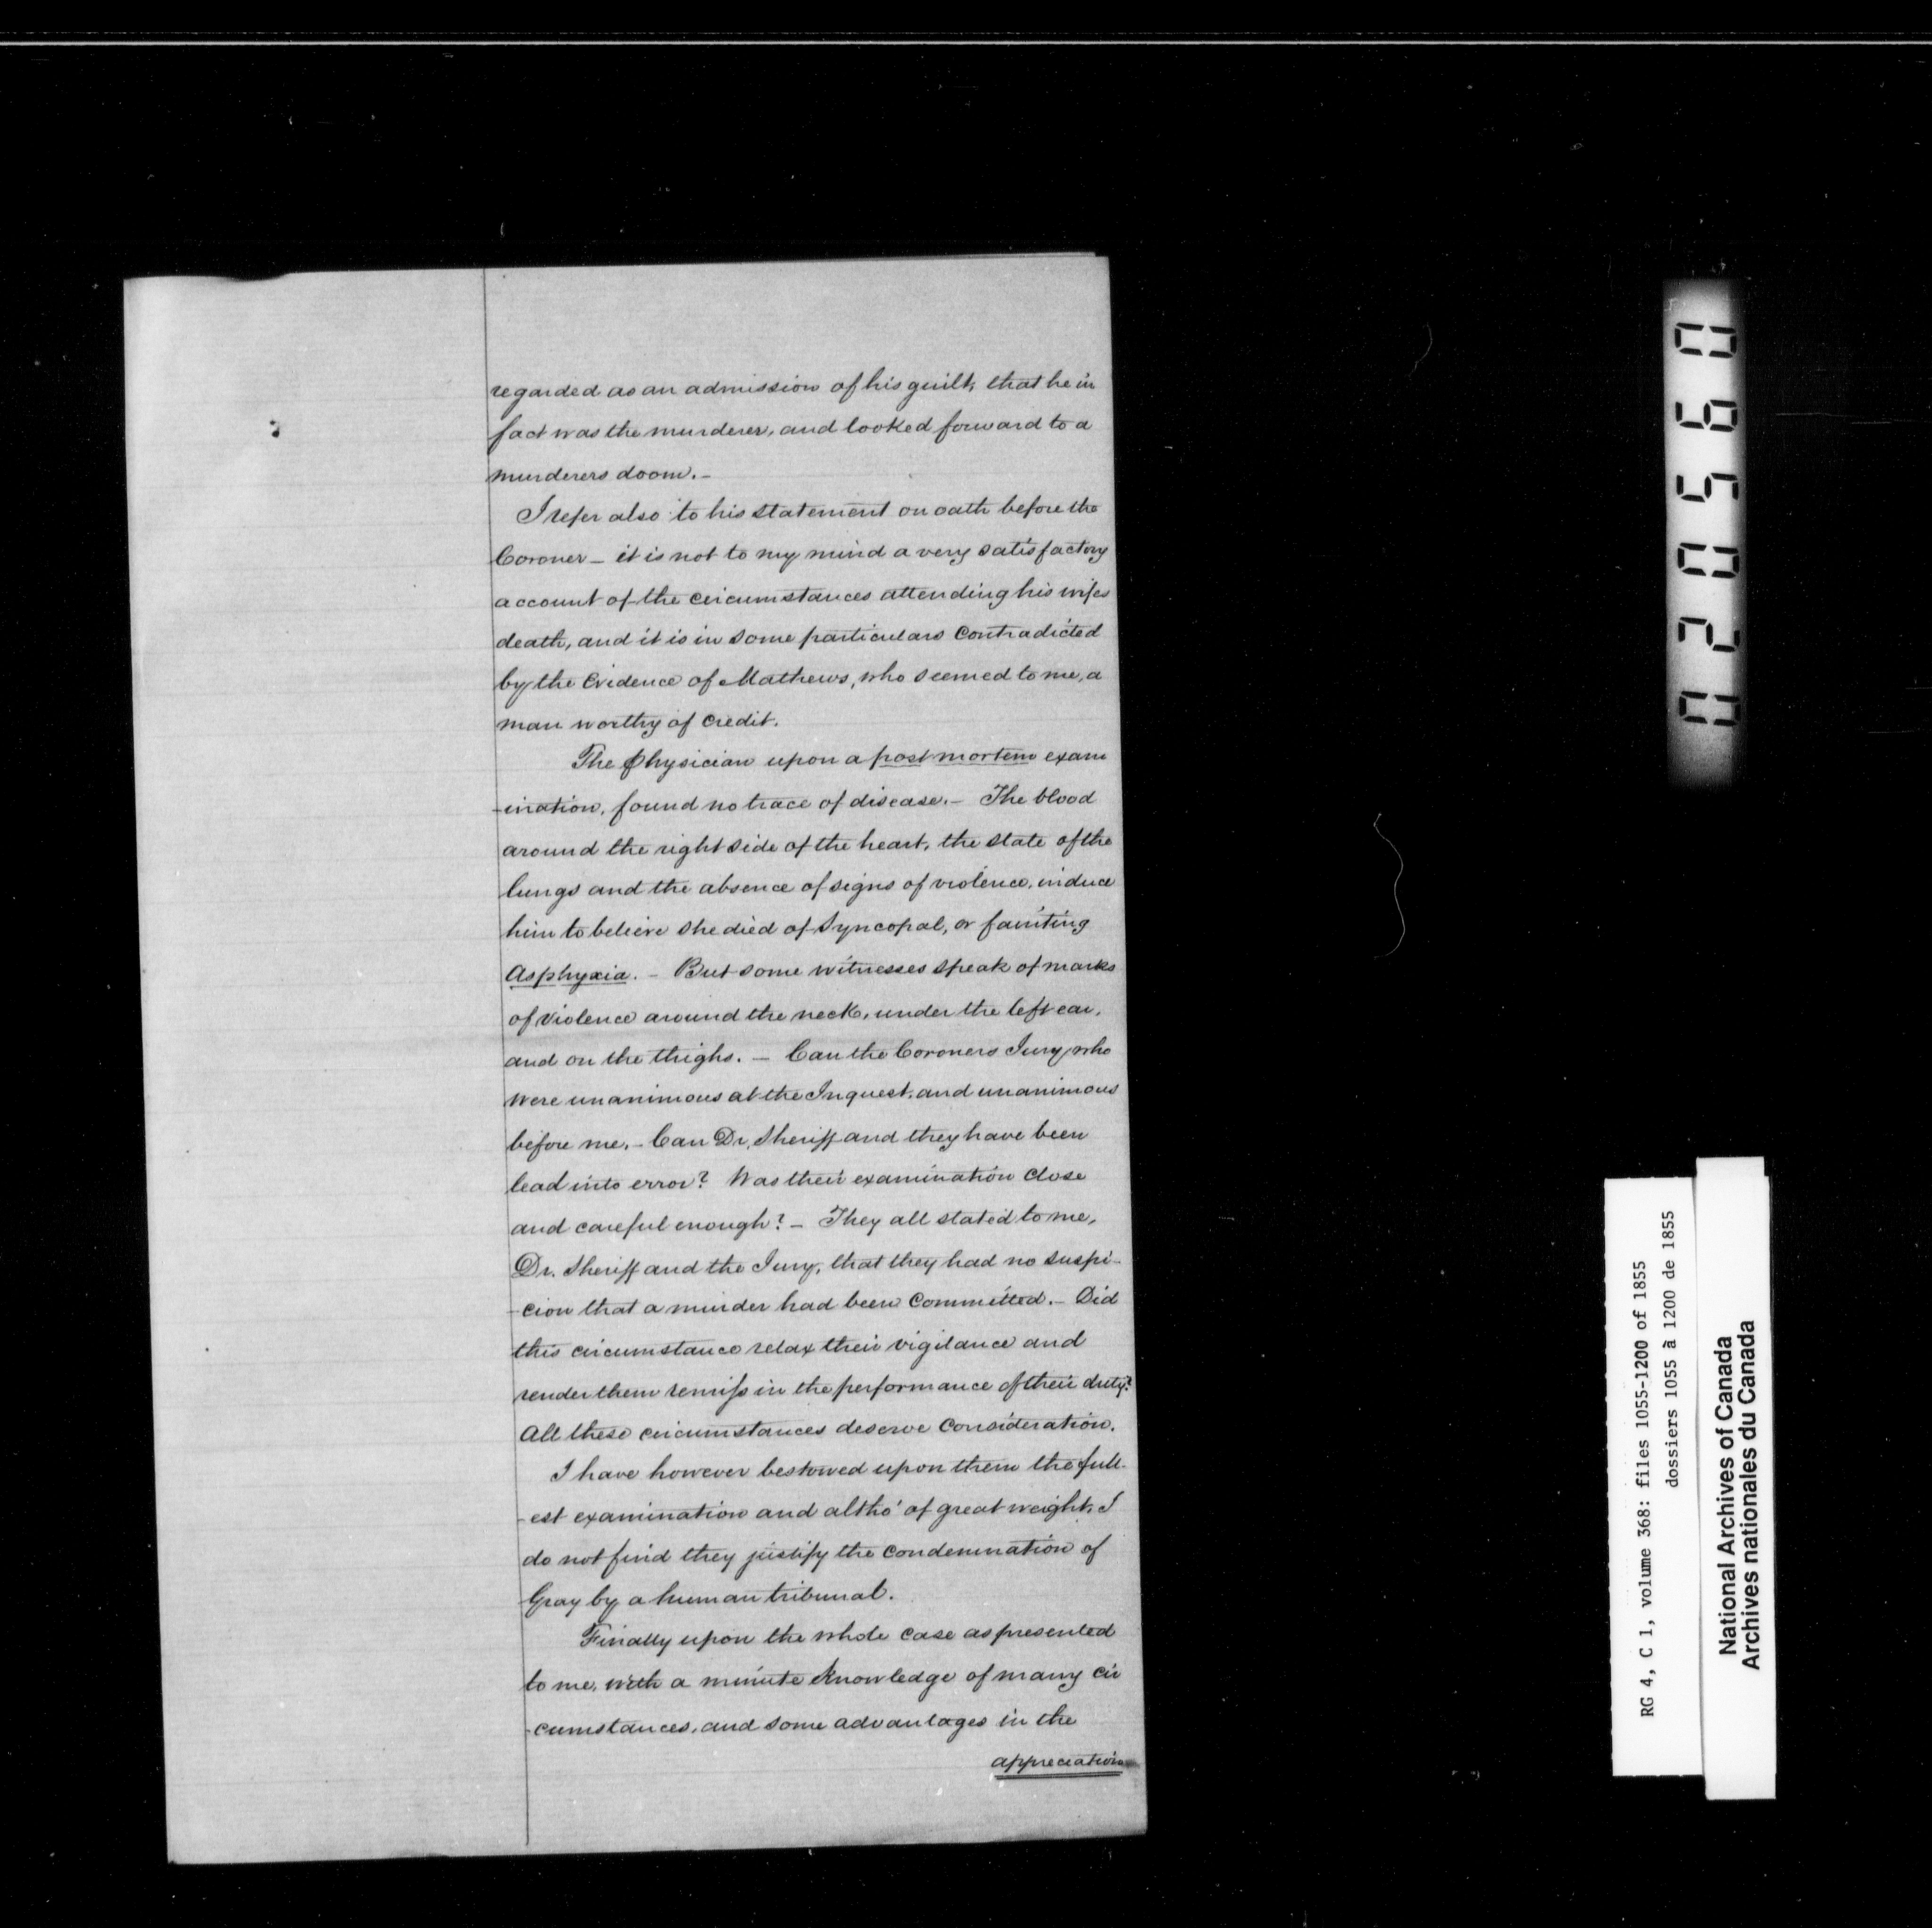 regarded as an admission of his guilt, that he in
fact was the murderer, and looked forward to a
murderers doom. –
I refer also to his statement on oath before the
Coroner – it is not to my mind a very satisfactory
account of the circumstances attending his wifes
death, and it is in some particulars contradicted
by the evidence of Mathews, who seemed to me, a
man worthy of credit.
The physician upon a post mortem exam
-ination, found no trace of disease. – The blood
around the right side of the heart, the state of the
lungs and the absence of signs of violence, induce
him to believe she died of Syncopal, or fainting
Asphyxia. – But some witnesses speak of marks
of violence around the neck, under the left ear,
and on the thighs. – Can the Coroners Jury, who
were unanimous at the Inquest, and unanimous
before me, – Can Dr. Sheriff and they have been
lead into error? Was their examination close
and careful enough? – They all stated to me,
Dr. Sheriff and the Jury, that they had no suspi-
-cion that a murder had been committed. – Did
this circumstance relax their vigilance and
render them remiss in the performance of their duty?
All these circumstances deserve consideration.
I have however bestowed upon them the full-
-est examination and altho' of great weight, I
do not find they justify the condemnation of
Gray by a human tribunal.
Finally upon the whole case as presented
to me, with a minute knowledge of many cir
-cumstances, and some advantages in the
appreciation
020560
RG 4, C 1, volume 368: files 1055-1200 of 1855
dossiers 1055 à 1200 de 1855
National Archives of Canada
Archives nationales du Canada